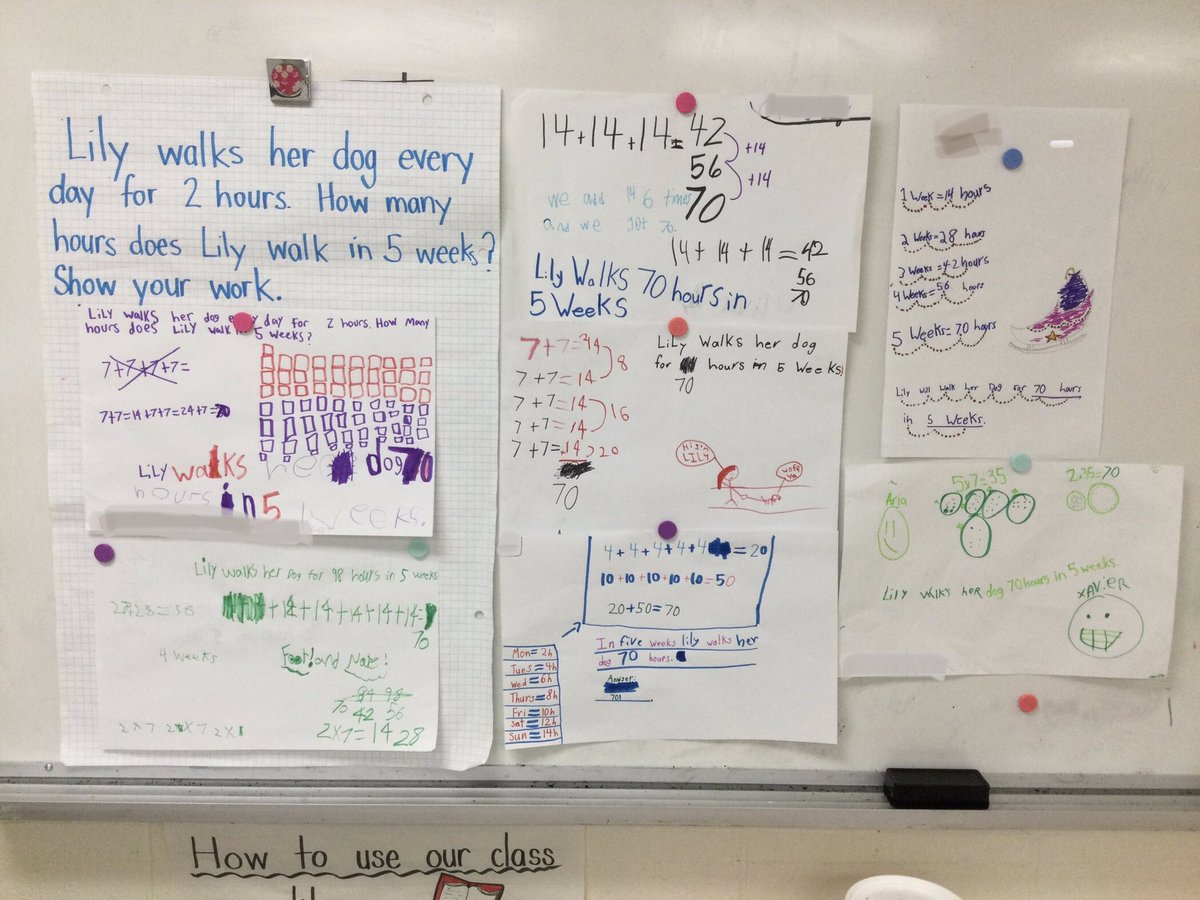 Lily walks her dog every
day for 2 hours. How many
hours does Lily walk in 5 weeks?
Show your work.
LiLy WaLks her dog every day for 2 hours. How Many
hours does LiLy walk in 5 weeks?
7+7+7+7=
7+7=14+7+7=24+7=70
LiLy walks her dog 70
hours in 5 weeks.
Lily walks her Dog for 98 hours in 5 weeks
28+28=56
+14+14+14+14+14=
70
4 weeks
84 98
70 42 56
2x7=14 28
2x7 2x7 2x
14+14+14=42
56
70
+14
+14
we add 14 6 times
and we got 70.
14+14+14=42
56
70
Lily Walks 70 hours in
5 Weeks
7+7=14
7+7=14
7+7=14
7+7=14
7+7=14
8
16
20
70
LiLy Walks her dog
for hours in 5 Weeks!
70
LILY
woff
4+4+4+4+4=20
10+10+10+10+10=50
20+50=70
In five weeks lily walks her
dog 70 hours.
Mon=2h
Tues=4h
Wed=6h
Thurs=8h
Fri=10h
Sat=12h
Sun=14h
1 Week=14 hours
2 Weeks=28 hours
3 Weeks=42 hours
4 Weeks=56 hours
5 Weeks=70 hours
Lily will walk her Dog for 70 hours
in 5 Weeks.
Aria
5x7=35
2x35=70
LiLy walks her dog 70 hours in 5 weeks.
XAViER
How to use our class